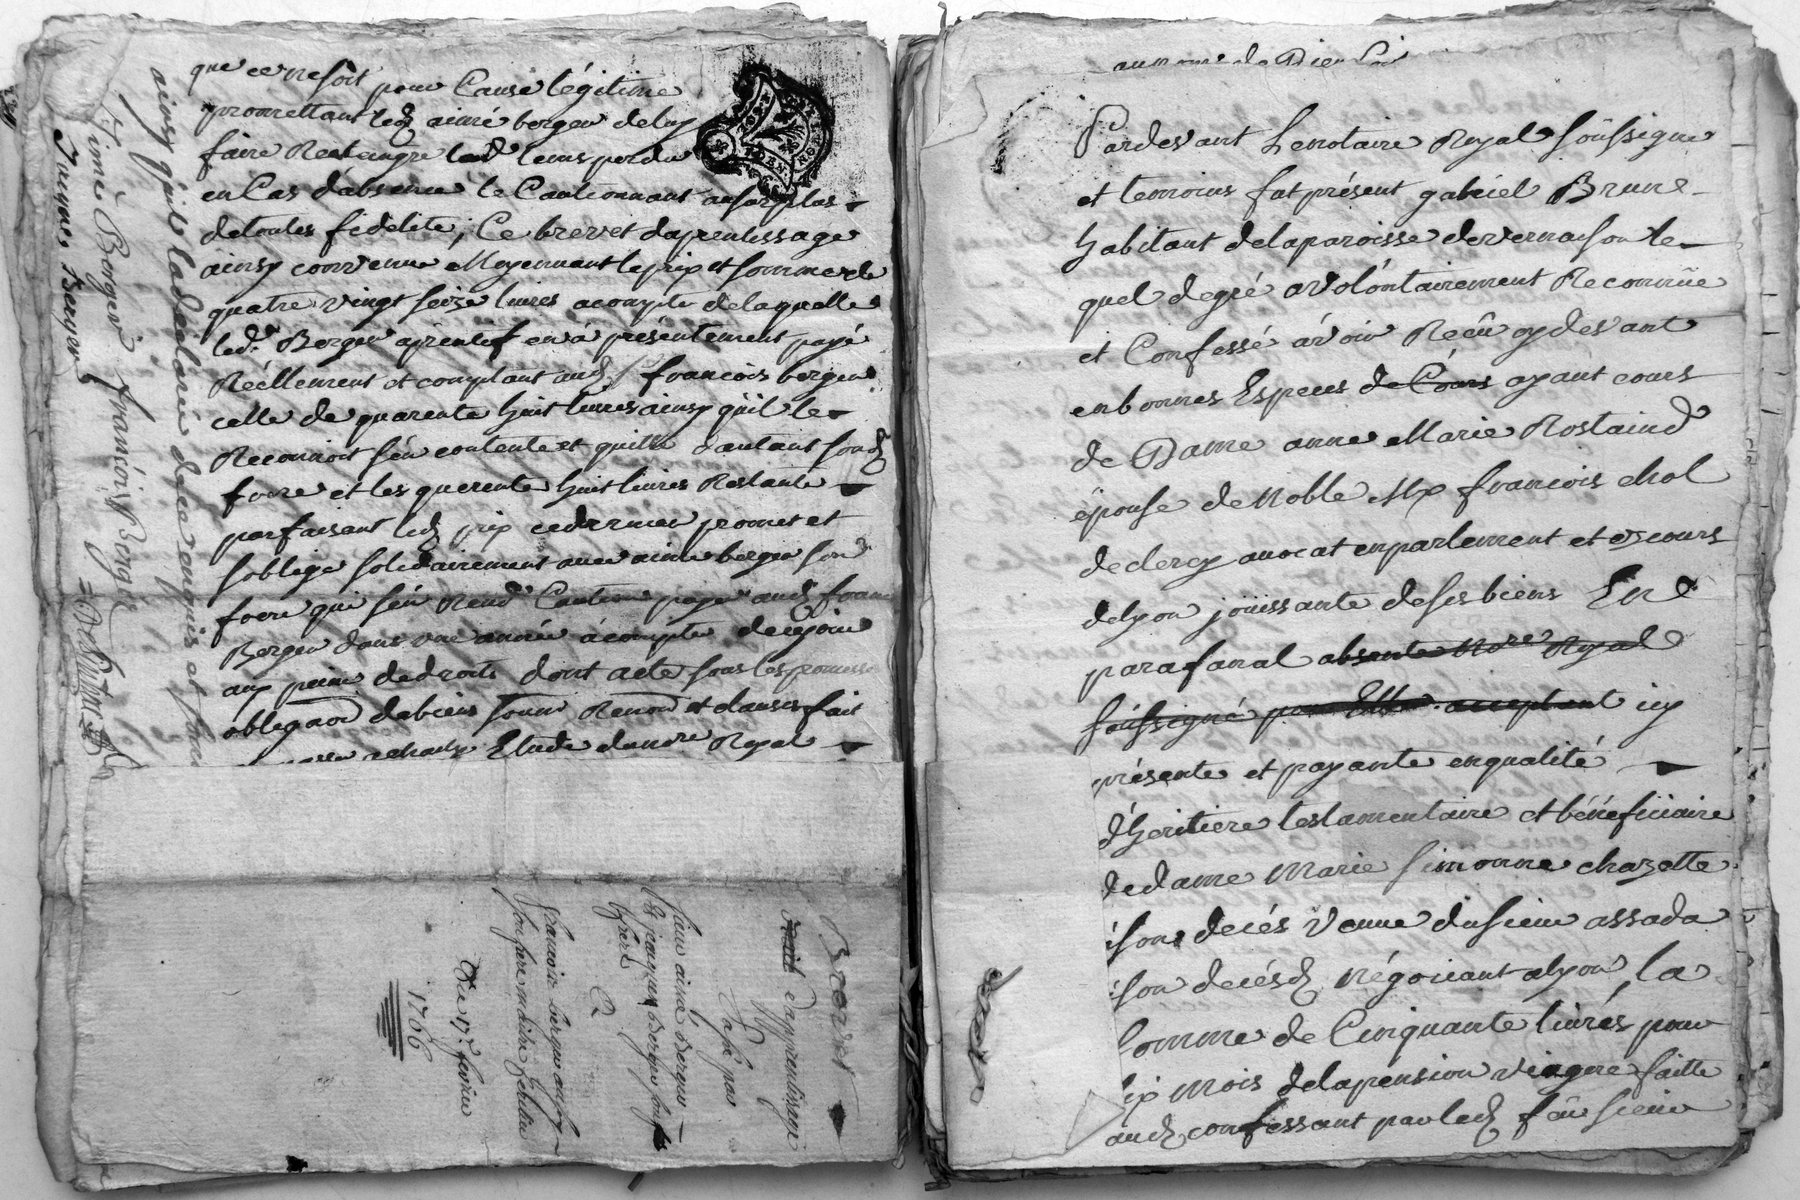 que ce ne soit pour Cause légitime
promettant led aimé berger de luy
faire Restraindre led tems perdu
en Cas d'absence le Cautionnant au surplus
de toutes fidelité, Ce brevet d'aprentissage
ainsy convenu Moyennant le prix et somme de
quatre vingt seize livres acompte de laquelle
led. Berger aprentif en a présentement payé
Réellement et comptant aud françois berger
celle de quarente huit livres ainsy qu'il le
Reconnoit s'en contente et quitte d'autant son d
frere et les quarente huit livres Restante
parfaisant led prix ce dernier promet et
s'oblige solidairement avec aimé berger son
frere qui s'en Rend Caution payer aud fran
Berger dans une année à compter de ce jour
aux peine de droits dont acte sous les promesse
obligaon de biens soum Renon et clauses fait
Etude dud nore Royal
ainsy qu'ils l'a déclaré de ce enquis et
Aimé Berger françois Berger
Jacque Berger
Brevet
d'apprentissage
Passé par
Sieur aimé Berger
et jacques Berger
frère
a
françois berger aussy
son frere
Du 17e fevrier
1766
au nom de Dieu soi
Pardevant Le notaire Royal soussigné
et temoins fut présent gabriel Brune
habitant de la paroisse de vernaison le
quel de gré a volontairement Reconnüe
et Confessé avoir Reçû cy devant
en bonnes Especes de Cours ayant cours
de Dame anne Marie Rostaind
épouse de Noble Mre françois chol
de clercy avocat en parlement et es cours
de lyon joüissante de ses biens En
parafarnal absente Nore Royal
soussigné pour Elle acceptant icy
présente et payante en qualité
d'heritiere testamentaire et bénéficiaire
de dame Marie simonne chazette
a son decés Veuve du sieur assada
a son decés d Négociant a lyon, la
somme de Cinquante livres pour
six Mois de la pension viagere faitte
aud confessant par led feu sieur